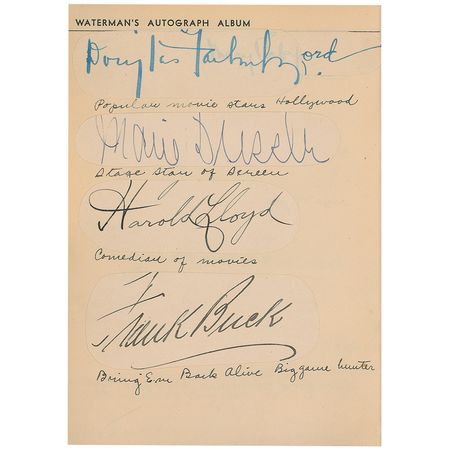 WATERMAN'S AUTOGRAPH ALBUM
Douglas Fairbanks
Popular movie stars Hollywood
Marie Dressler
Stage Star of Screen
Harold Lloyd
Comedian of movies
Frank Buck
Bring 'Em Back Alive Big game hunter